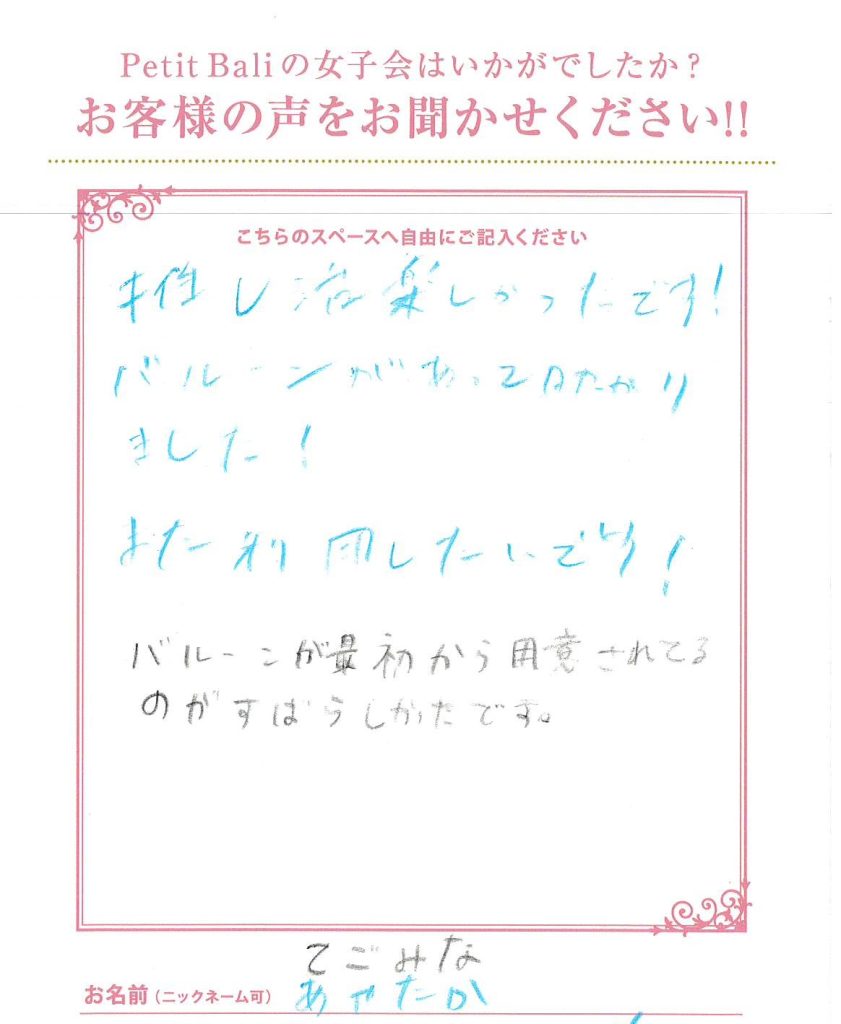 Petit Baliの女子会はいかがでしたか？
お客様の声をお聞かせください!!
こちらのスペースへ自由にご記入ください
推し活楽しかったです!
バルーンがあって助かり
ました!
また利用したいです!
バルーンが最初から用意されてる
のがすばらしかったです。
てごみな
お名前（ニックネーム可） あやたか